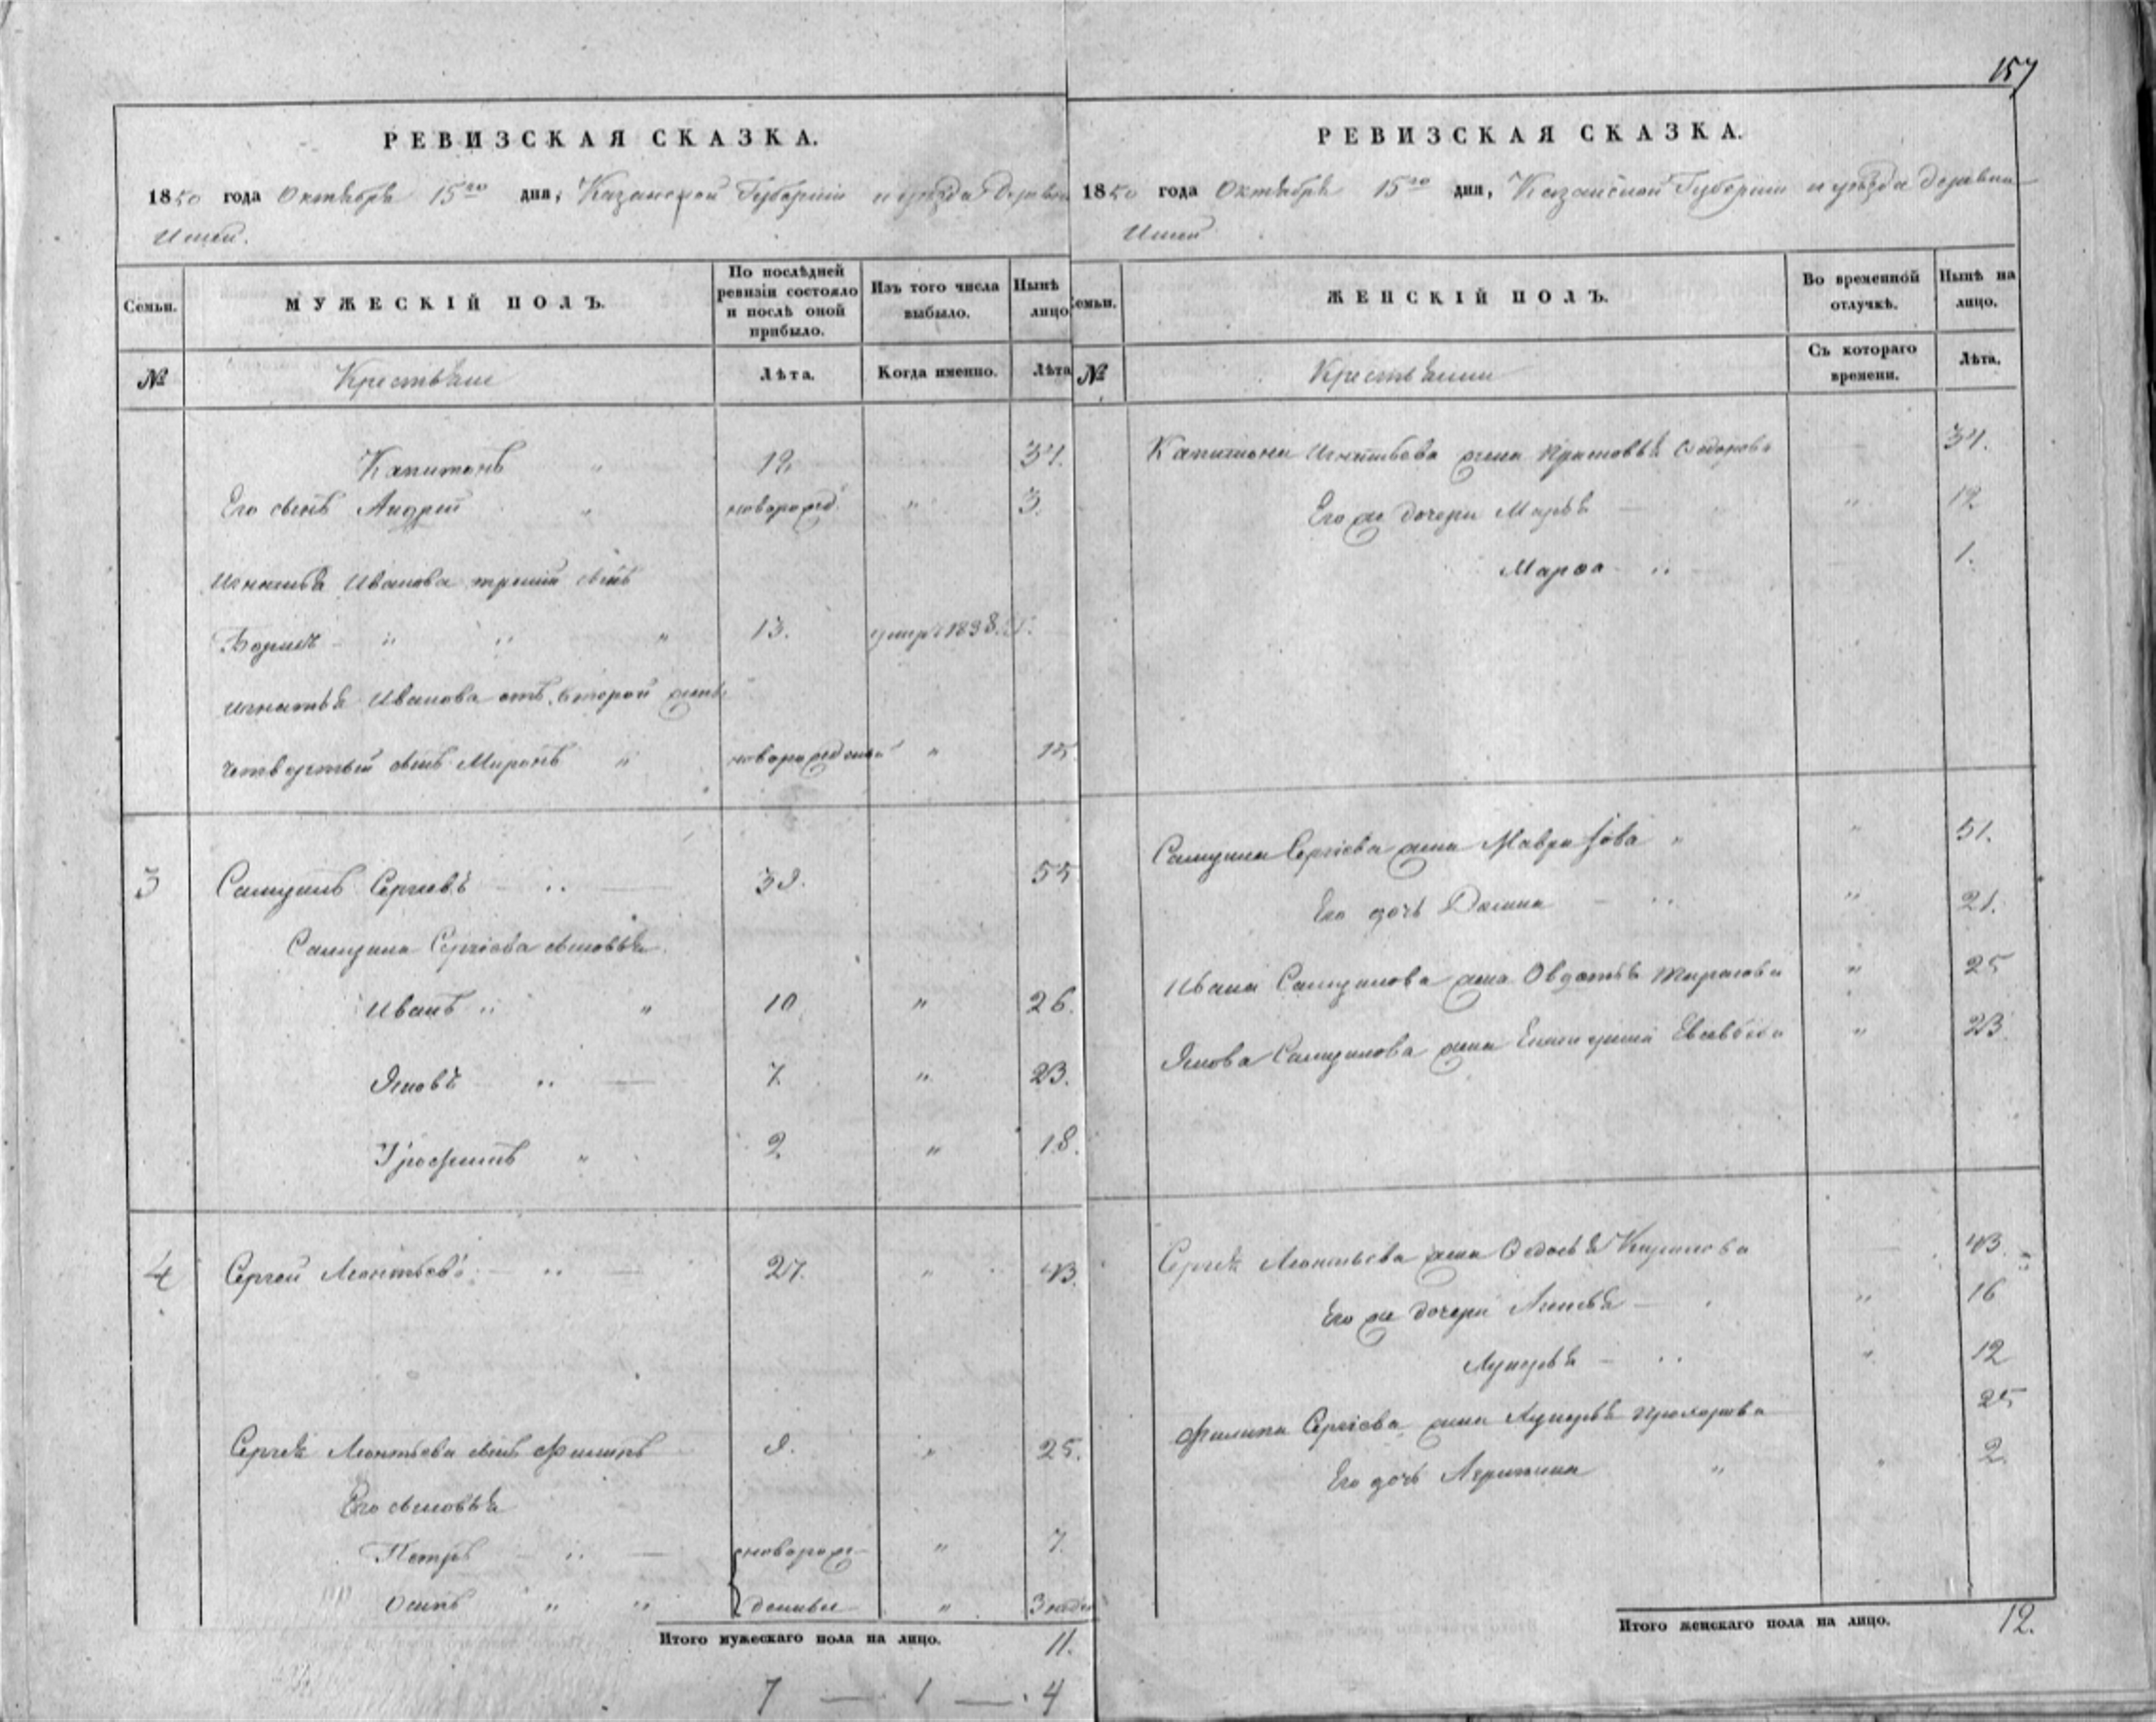 157
РЕВИЗСКАЯ СКАЗКА.
1850 года Октября 15го дня, Казанской Губернии и уѣзда деревни
Ишей.
Семьи.
МУЖЕСКІЙ ПОЛЪ.
По послѣдней ревизіи состояло и послѣ оной прибыло.
Изъ того числа выбыло.
Нынѣ лицо
№
Крестьяне
Лѣта.
Когда именно.
Лѣта
Капитонъ " 19. 34.
Его сынъ Андрей " новорожд. " 3.
Игнатья Иванова третій сынъ
Борисъ " " " 13. умръ 1838.
Игнатья Иванова отъ второй жены
четвертый сынъ Миронъ " новорожденный " 15
3 Самуилъ Сергѣевъ 39. 55
Самуила Сергіева сыновья
Иванъ " " 10 " 26.
Яковъ " 7. " 23.
Трофимъ " 2. " 18.
4 Сергей Леонтьевъ 27. " 43.
Сергѣя Леонтьева сынъ Филипъ 9. " 25.
Его сыновья
Петръ " новорож- " 7.
Осипъ " " денные " 3 недел
Итого мужескаго пола на лицо. 11.
7 — 1 — 4
РЕВИЗСКАЯ СКАЗКА.
1850 года Октября 15го дня, Казанской Губерніи и уѣзда деревни
Ишей
Семьи.
ЖЕНСКІЙ ПОЛЪ.
Во временной отлучкѣ.
Нынѣ на лицо.
№
Крестьянки
Съ котораго времени.
Лѣта.
Капитона Игнатьева жена Прасковья Ѳедорова 34.
Его же дочери Марья " 12
Марѳа " 1.
Самуила Сергіева жена Мавра " 51.
Его дочь " 21.
Ивана Самуилова жена Овдотья Тарасова " 25
Якова Самуилова жена " 23.
Сергѣя Леонтьева жена Ѳедосья Кирилова 43.
Его же дочери " 16
Лукерья " 12
Филипа Сергіева жена Лукерья Прохорова 25
Его дочь " 2.
Итого женскаго пола на лицо. 12.